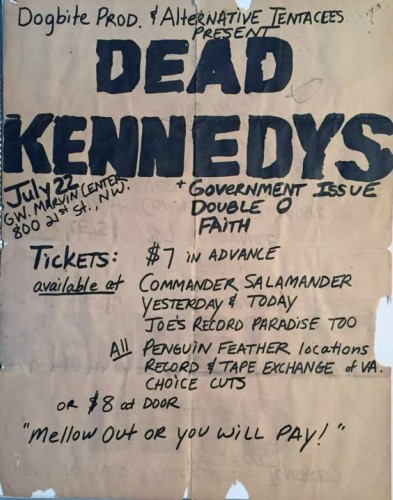 Dogbite PROD. & Alternative Tentacles
PRESENT
DEAD
KENNEDYS
July 22
GW. MARVIN CENTER
800 21st St., N.W.
+ Government Issue
Double O
Faith
Tickets: $7 in advance
available at Commander Salamander
Yesterday & Today
Joe's Record Paradise Too
All Penguin Feather locations
Record & Tape Exchange of VA.
Choice Cuts
or $8 at door
"Mellow Out or you will pay!"